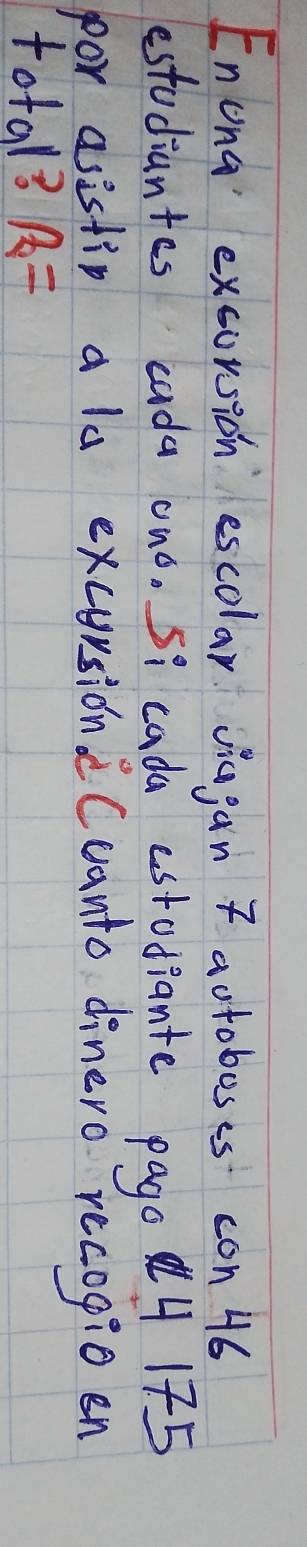 En una excursión escolar viajan 7 autobuses con 46
estudiantes cada uno. Si cada estudiante pago ₡4 175
por asistir a la excursión ¿Cuanto dinero recogio en
total? R=